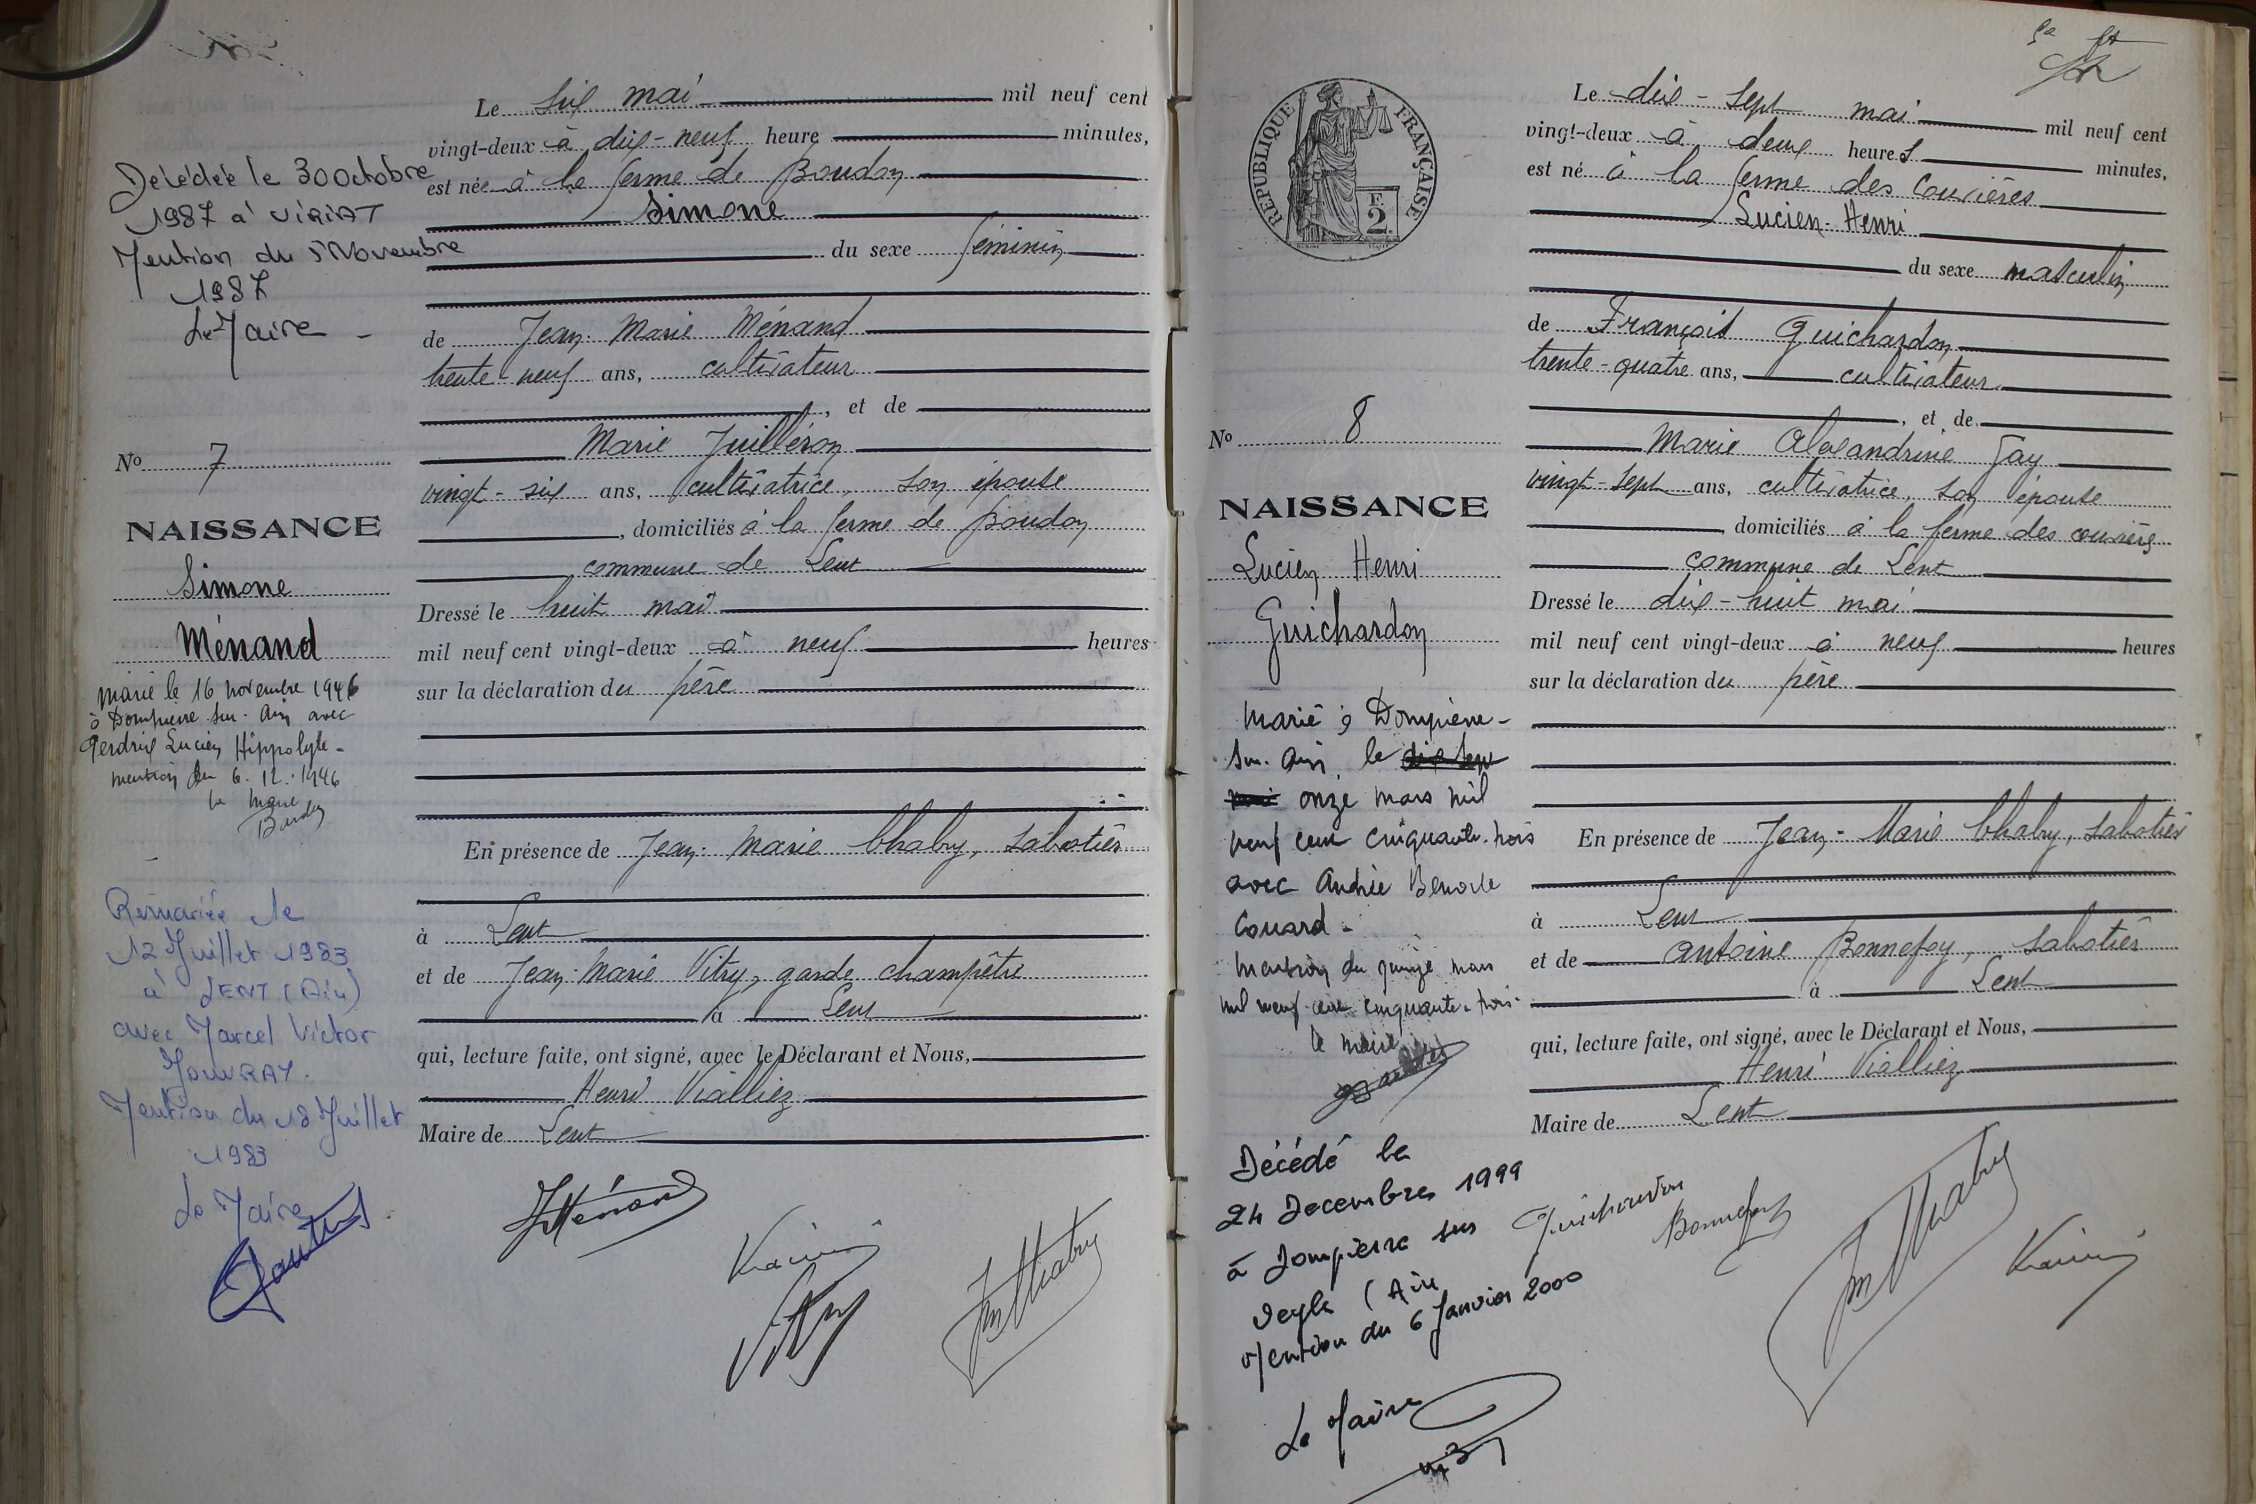 Le six mai mil neuf cent
vingt-deux à dix-neuf heure minutes,
est née à la ferme de Boudon
Simone
du sexe féminin
de Jean-Marie Ménand
trente-neuf ans, cultivateur
, et de
Marie Juilléron
vingt-six ans, cultivatrice, son épouse
, domiciliés à la ferme de Boudon
commune de Lent
Dressé le huit mai
mil neuf cent vingt-deux à neuf heures
sur la déclaration du père
En présence de Jean-Marie Chabry, sabotier
à Lent
et de Jean-Marie Vitry, garde champêtre
à Lent
qui, lecture faite, ont signé, avec le Déclarant et Nous,
Henri Vialliez
Maire de Lent
Décédée le 30 octobre
1987 à VIRIAT
Mention du 5 Novembre
1987
Le Maire
No 7
NAISSANCE
Simone
Ménand
marié le 16 novembre 1946
à Dompierre-sur-Ain avec
Perdrix Lucien Hippolyte-
mention du 6.12.1946
le Maire
Remariée le
12 Juillet 1983
à LENT (Ain)
avec Marcel Victor
MOUVRAY.
Mention du 18 Juillet
1983
Le Maire
JMénand
Vitry
JM Chabry
RÉPUBLIQUE FRANÇAISE
F.
2
Le dix-sept mai mil neuf cent
vingt-deux à deux heures minutes,
est né à la ferme des couvières
Lucien-Henri
du sexe masculin
de François Guichardon
trente-quatre ans, cultivateur
, et de
Marie Alexandrine Gay
vingt-sept ans, cultivatrice, son épouse
domiciliés à la ferme des couvières
commune de Lent
Dressé le dix-huit mai
mil neuf cent vingt-deux à neuf heures
sur la déclaration du père
En présence de Jean-Marie Chabry, sabotier
à Lent
et de Antoine Bonnefoy, sabotier
à Lent
qui, lecture faite, ont signé, avec le Déclarant et Nous,
Henri Vialliez
Maire de Lent
No 8
NAISSANCE
Lucien Henri
Guichardon
Marié à Dompierre-
sur-Ain, le
onze mars mil
neuf cent cinquante-trois
avec Andrée Benoite
Couard-
Mention du quinze mars
mil neuf cent cinquante-trois-
le maire
Décédé le
24 Decembre 1999
à Dompierre sur
Veyle (Ain
Mention du 6 Janvier 2000
Le Maire
Guichardon
Bonnefoy
JM Chabry